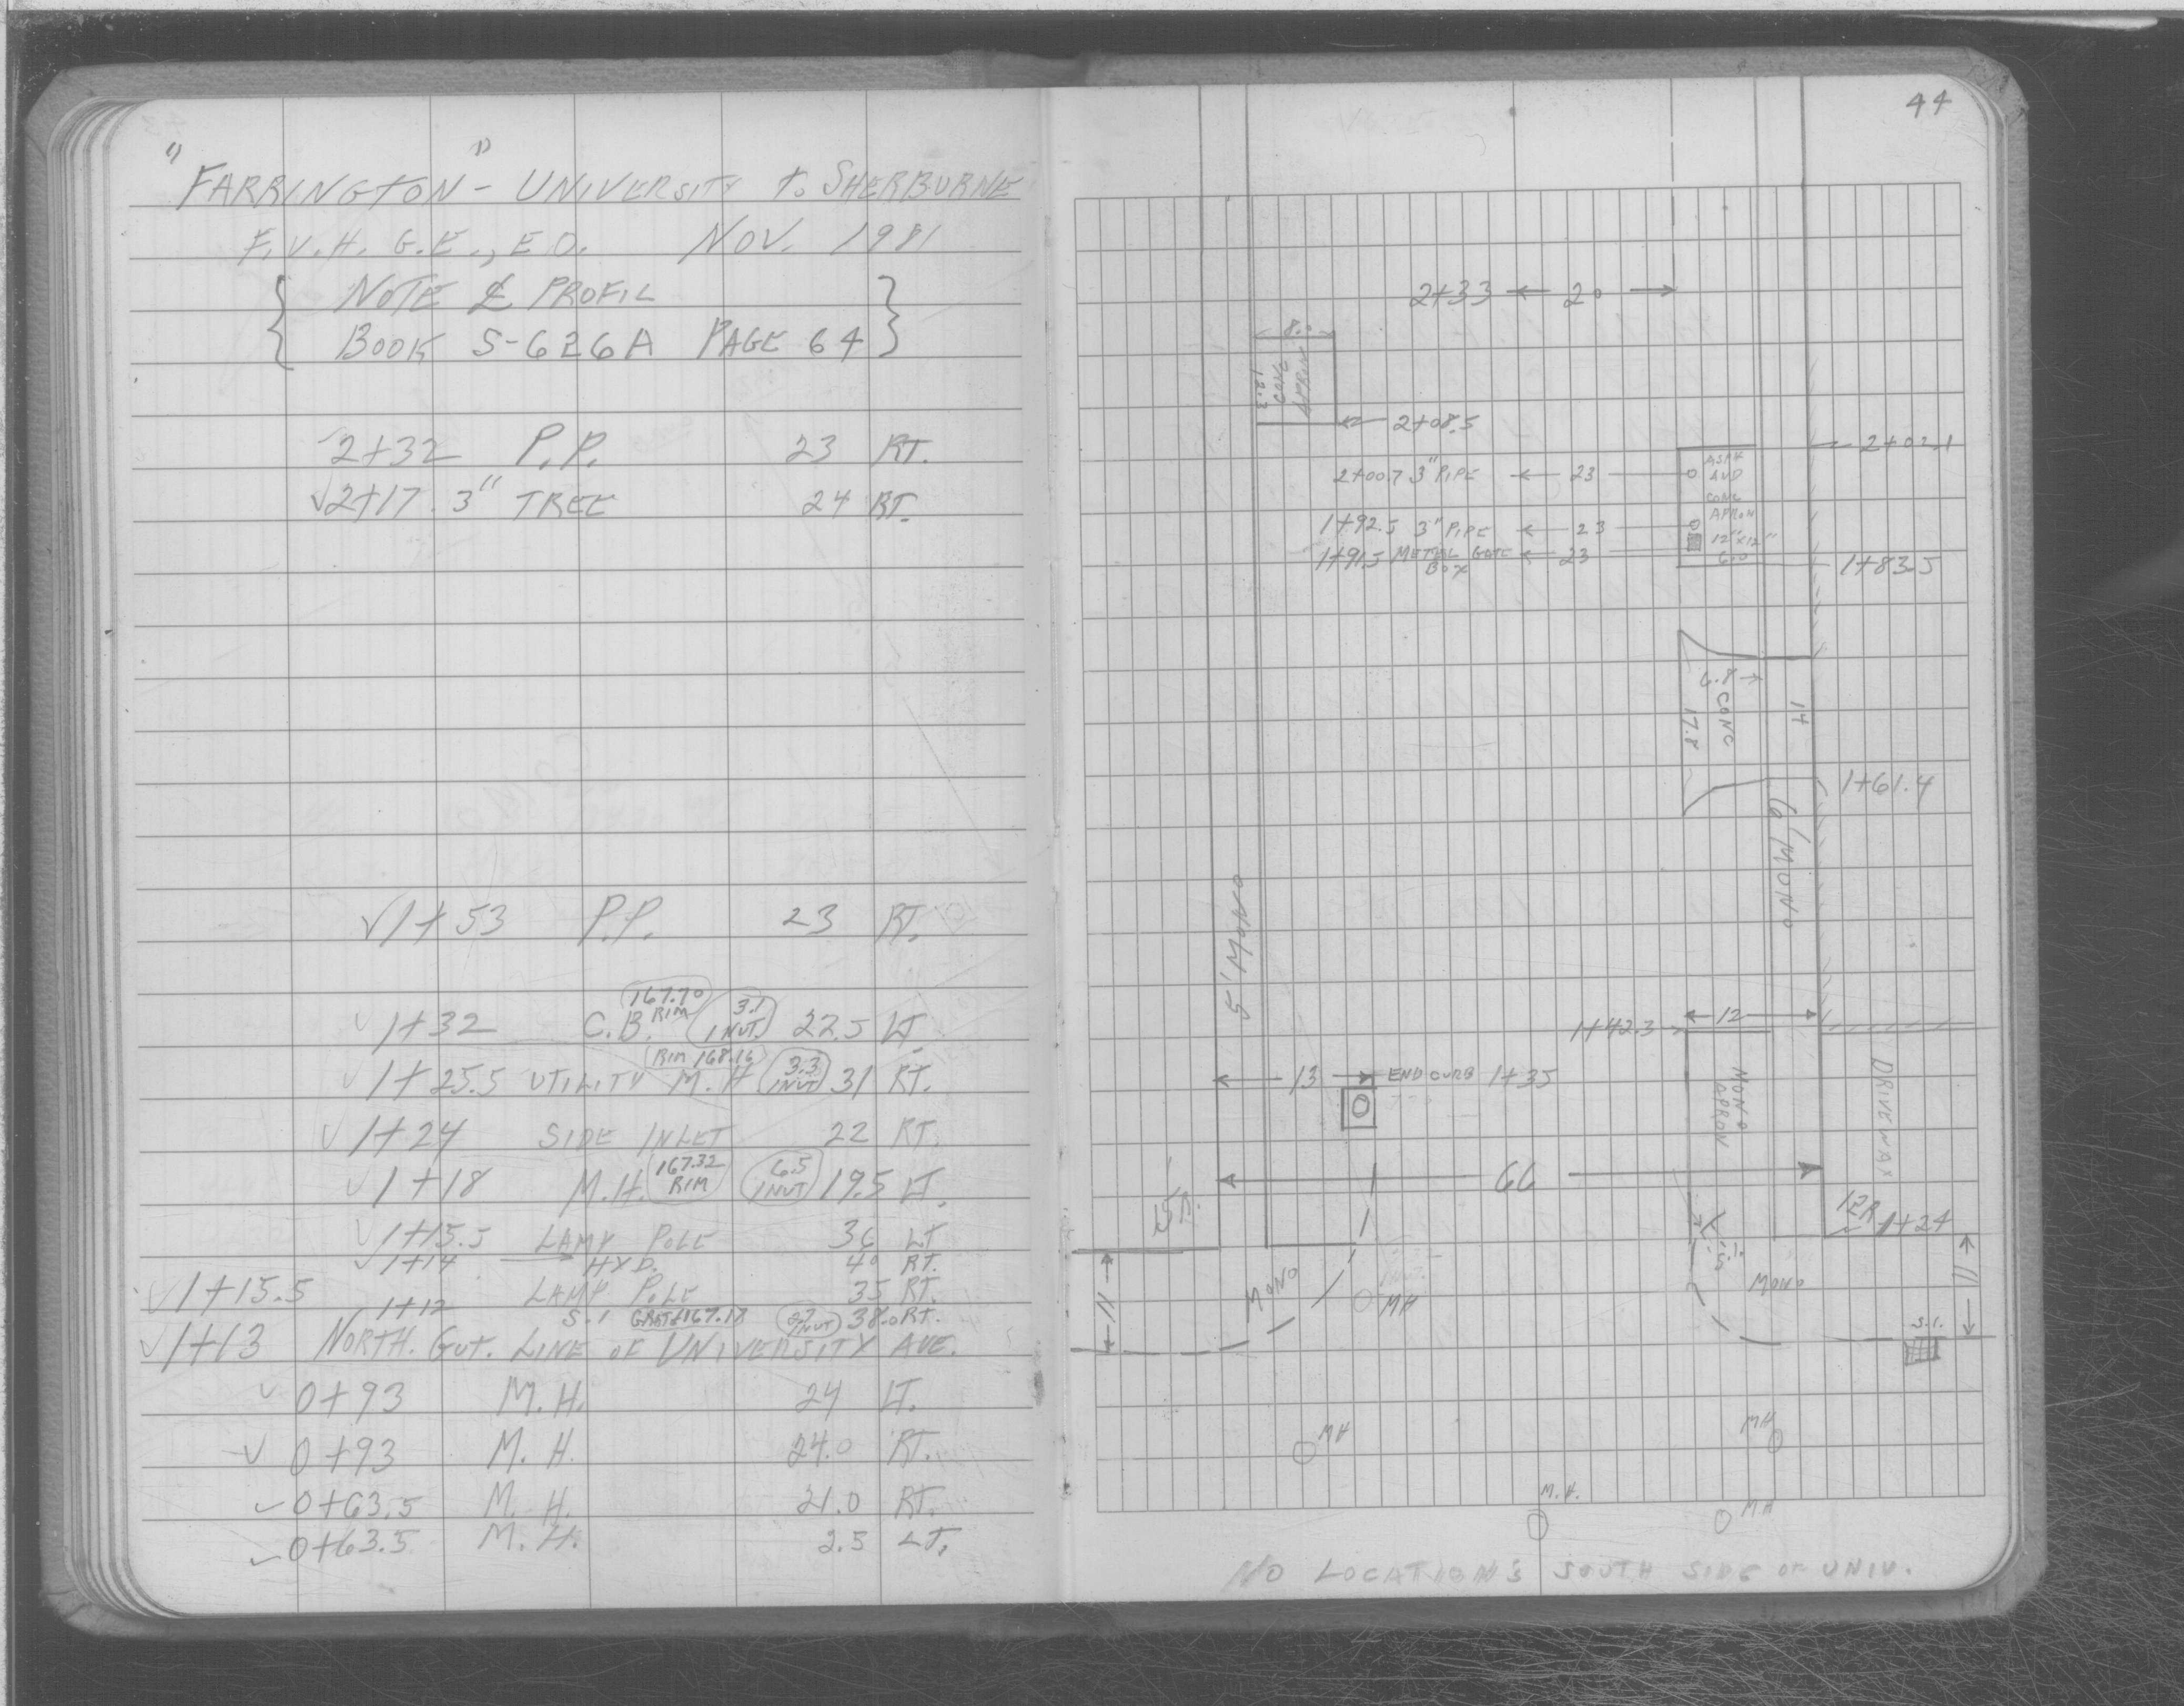 "FARRINGTON" - UNIVERSITY to SHERBURNE
F.V.H. G.E., E.O. NOV. 1981
NOTE ℄ PROFIL
BOOK S-626A PAGE 64
2+32 P.P. 23 RT.
✓2+17 3" TREE 24 RT.
✓1+53 P.P. 23 RT.
✓1+32 C.B. 167.70 RIM 3.1 INVT. 22.5 LT.
✓1+25.5 UTILITY M.H RIM 168.16 3.3 INVT 31 RT.
✓1+24 SIDE INLET 22 RT.
✓1+18 M.H. 167.32 RIM 6.5 INVT 19.5 LT.
✓1+15.5 LAMP POLE 36 LT
✓1+14 HYD. 40 RT.
✓1+15.5 LAMP POLE 35 RT.
1+12 S.I GRATE 167.17 INVT 38.0 RT.
✓1+13 NORTH. GUT. LINE OF UNIVERSITY AVE.
✓0+93 M.H. 24 LT.
✓0+93 M.H. 24.0 RT.
✓0+63.5 M.H. 21.0 RT.
✓0+63.5 M.H. 2.5 LT.
44
2+33 ← 20 →
8.0
12.3
CONC
APRON
← 2+08.5
← 2+02.1
2+00.7 3" PIPE ← 23
ASPH
AND
CONC
APRON
1+92.5 3" PIPE ← 23
12"x12"
1+91.5 METAL GATE BOX ← 23
6.0
1+83.5
6.8 →
CONC
17.8
14
1+61.4
6' MONO
5' MONO
1+42.3 → ← 12 →
← 13 → END CURB 1+35
MONO
APRON
DRIVEWAY
← 66 →
15R.
12R 1+24
S.I.
11
MONO
INVT.
MH
MONO
11
S.I.
MH
MH
M.H.
MH
NO LOCATION'S SOUTH SIDE OF UNIV.